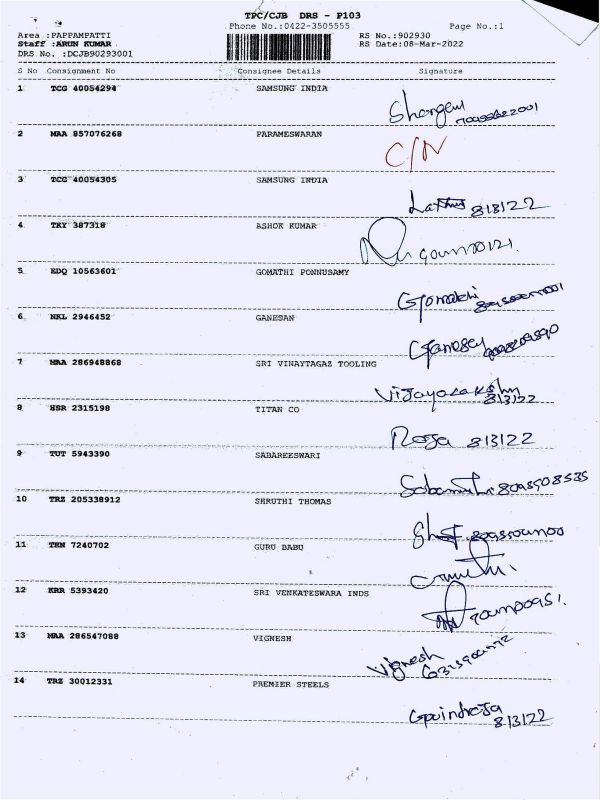 TPC/CJB DRS - P103
Phone No.:0422-3505555 Page No.:1
Area :PAPPAMPATTI RS No.:902930
Staff :ARUN KUMAR RS Date:08-Mar-2022
DRS No. :DCJB90293001
S No Consignment No Consignee Details Signature
1 TCG 40054294 SAMSUNG INDIA
2 MAA 857076268 PARAMESWARAN
C/N
3 TCG 40054305 SAMSUNG INDIA
8/3/22
4 TKY 387318 ASHOK KUMAR
5 EDQ 10563601 GOMATHI PONNUSAMY
Gomathi
6 NKL 2946452 GANESAN
7 MAA 286948868 SRI VINAYTAGAZ TOOLING
8/3/22
8 HSR 2315198 TITAN CO
Roja 8/3/22
9 TUT 5943390 SABAREESWARI
10 TRZ 205338912 SHRUTHI THOMAS
11 TEN 7240702 GURU BABU
12 KRR 5393420 SRI VENKATESWARA INDS
13 MAA 286547088 VIGNESH
Vignesh
14 TRZ 30012331 PREMIER STEELS
8/3/22